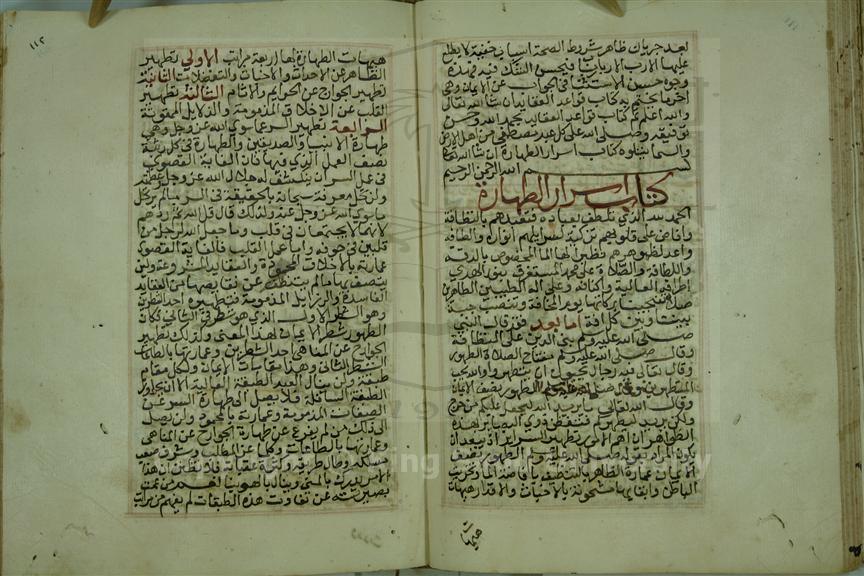 لعد جريان ظاهر شروط الصحة اسباب خفية لا يطلع
عليها الا رب الارباب فيحسن الشك فيه فهذه
وجوه حسن الاستثناء في الجواب عن الايمان وهي
اخر ما نختم به كتاب قواعد العقايد ان شا الله تعالى
والله اعلم تم كتاب قواعد العقايد بحمد الله وحسن
توفيقه وصلى الله على كل عبد مصطفى من اهل الارض
والسما يتلوه كتاب اسرار الطهارة ان شا الله
بسم الله الرحمن الرحيم
كتاب اسرار الطهارة
الحمد لله الذي تلطف لعباده فتعبدهم بالنظافة
وافاض على قلوبهم تزكية لسرايرهم انواره والطافه
واعد لظواهرهم تطهيرا لها الما المخصوص بالرقة
واللطافة والصلاة على محمد المستغرق بنور الهدى
اطراف العالم واكنافه وعلى اله الطيبين الطاهرين
صلاة تنجينا بركاتها يوم المخافة وتنتصب جنة
بيننا وبين كل افة اما بعد فقد قال النبي
صلى الله عليه وسلم بني الدين على النظافة
وقال صلى الله عليه وسلم مفتاح الصلاة الطهور
وقال تعالى فيه رجال يحبون ان يتطهروا والله يحب
المتطهرين وقال صلى الله عليه وسلم الطهور نصف الايمان
وقال الله تعالى ما يريد الله ليجعل عليكم من حرج
ولكن يريد ليطهركم فتفطن ذوي البصاير بهذه
الظواهر ان اهم الامور تطهير السراير اذ يبعد ان
يكون المراد بقوله صلى الله عليه وسلم الطهور نصف
الايمان عمارة الظاهر بالتنظيف بافاضة الما وتخريب
الباطن وابقايه مشحونا بالاخباث والاقذار هيهات
هيهات
١١٢
هيهات الطهارة لها اربعة مراتب الاولى تطهير
الظاهر عن الاحداث والاخباث والفضلات الثانية
تطهير الجوارح عن الجرايم والاثام الثالثة تطهير
القلب عن الاخلاق المذمومة والرذايل الممقوتة
الرابعة تطهير السر عما سوى الله عز وجل وهي
طهارة الانبيا والصديقين والطهارة في كل رتبة
نصف العمل الذي فيها فان الغاية القصوى
في عمل السر ان ينكشف له جلال الله عز وجل وعظمته
ولن تحل معرفة سبحانه بالحقيقة في السر ما لم يرحل
ما سوى الله عز وجل عنه ولذلك قال قل الله ثم ذرهم
لانهما لا يجتمعان في قلب وما جعل الله لرجل من
قلبين في جوفه واما عمل القلب فالغاية القصوى
عمارته بالاخلاق المحمودة والعقايد المشروعة ولن
يتصف بها ما لم يتنظف عن نقايصها من العقايد
الفاسدة والرذايل المذمومة فتطهيره احد الشطرين
وهو الشطر الاول الذي هو شرط في الثاني فكان
الطهور شطر الايمان بهذا المعنى وكذلك تطهير
الجوارح عن المناهي احد الشطرين وعمارتها بالطاعات
الشطر الثاني وهذه مقامات الايمان ولكل مقام
طبقة ولن ينال العبد الطبقة العالية الا ان يجاوز
الطبقة السافلة فلا يصل الى طهارة السر عن
الصفات المذمومة وعمارته بالمحمودة ولن يصل
الى ذلك من لم يفرغ عن طهارة الجوارح عن المناهي
وعمارتها بالطاعات وكلما عز المطلب وشرف صعب
مسلكه وطال طريقه وكثرت عقباته فلا تظنن ان هذا
الامر يدرك بالمنى وينال بالهوينا نعم من عميت
بصيرته عن تفاوت هذه الطبقات لم يفهم من مراتب